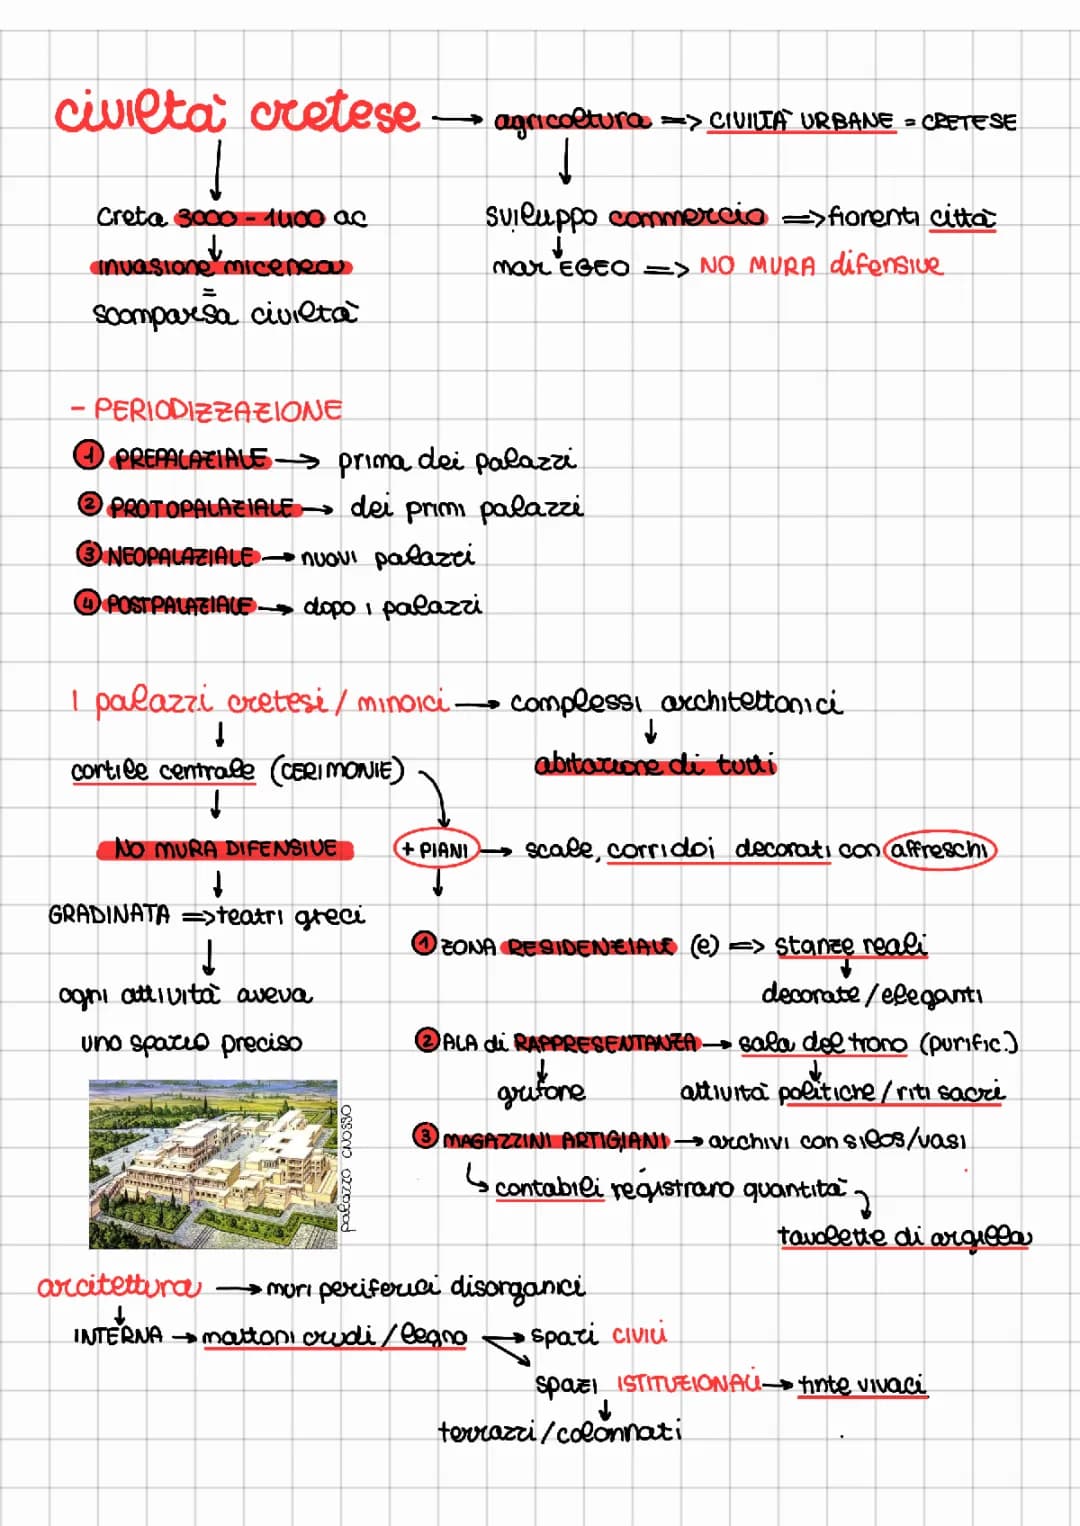 civiltà cretese → agricoltura => CIVILTÀ URBANE = CRETESE
↓ ↓
Creta 3000 - 1400 ac sviluppo commercio => fiorenti città
↓ ↓
invasione micenea mar EGEO => NO MURA difensive
=
scomparsa civiltà
- PERIODIZZAZIONE
1 PREPALAZIALE → prima dei palazzi
2 PROTOPALAZIALE → dei primi palazzi
3 NEOPALAZIALE → nuovi palazzi
4 POSTPALAZIALE → dopo i palazzi
I palazzi cretesi / minoici → complessi architettonici
↓ ↓
cortile centrale (CERIMONIE) abitazione di tutti
↓
NO MURA DIFENSIVE + PIANI → scale, corridoi decorati con affreschi
↓ ↓
GRADINATA => teatri greci
↓
ogni attività aveva
uno spazio preciso
1 ZONA RESIDENZIALE (e) => stanze reali
↓
decorate / eleganti
2 ALA di RAPPRESENTANZA → sala del trono (purific.)
↓ ↓
grifone attività politiche / riti sacri
3 MAGAZZINI ARTIGIANI → archivi con silos/vasi
contabili registrano quantità
tavolette di argilla
palazzo CNOSSO
arcitettura → muri periferici disorganici
↓
INTERNA → mattoni crudi / legno → spazi CIVILI
spazi ISTITUZIONALI → tinte vivaci
↓
terrazzi / colonnati